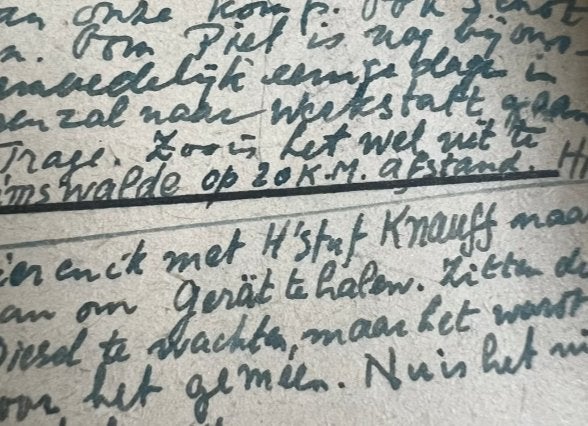 an onze Komp. Ook
n. Pom Piel is nog bij ons
eenige dagen in
en zal naar Werkstatt gaan
Trage. Zoo is het wel uit te
mswalde op 20 K.M. afstand. H
ier en ik met H'Stuf Knauff naa
an om Gerät te halen. Zitten de
Diesel te wachten, maar het wordt
oor het gemeen. Nu is het